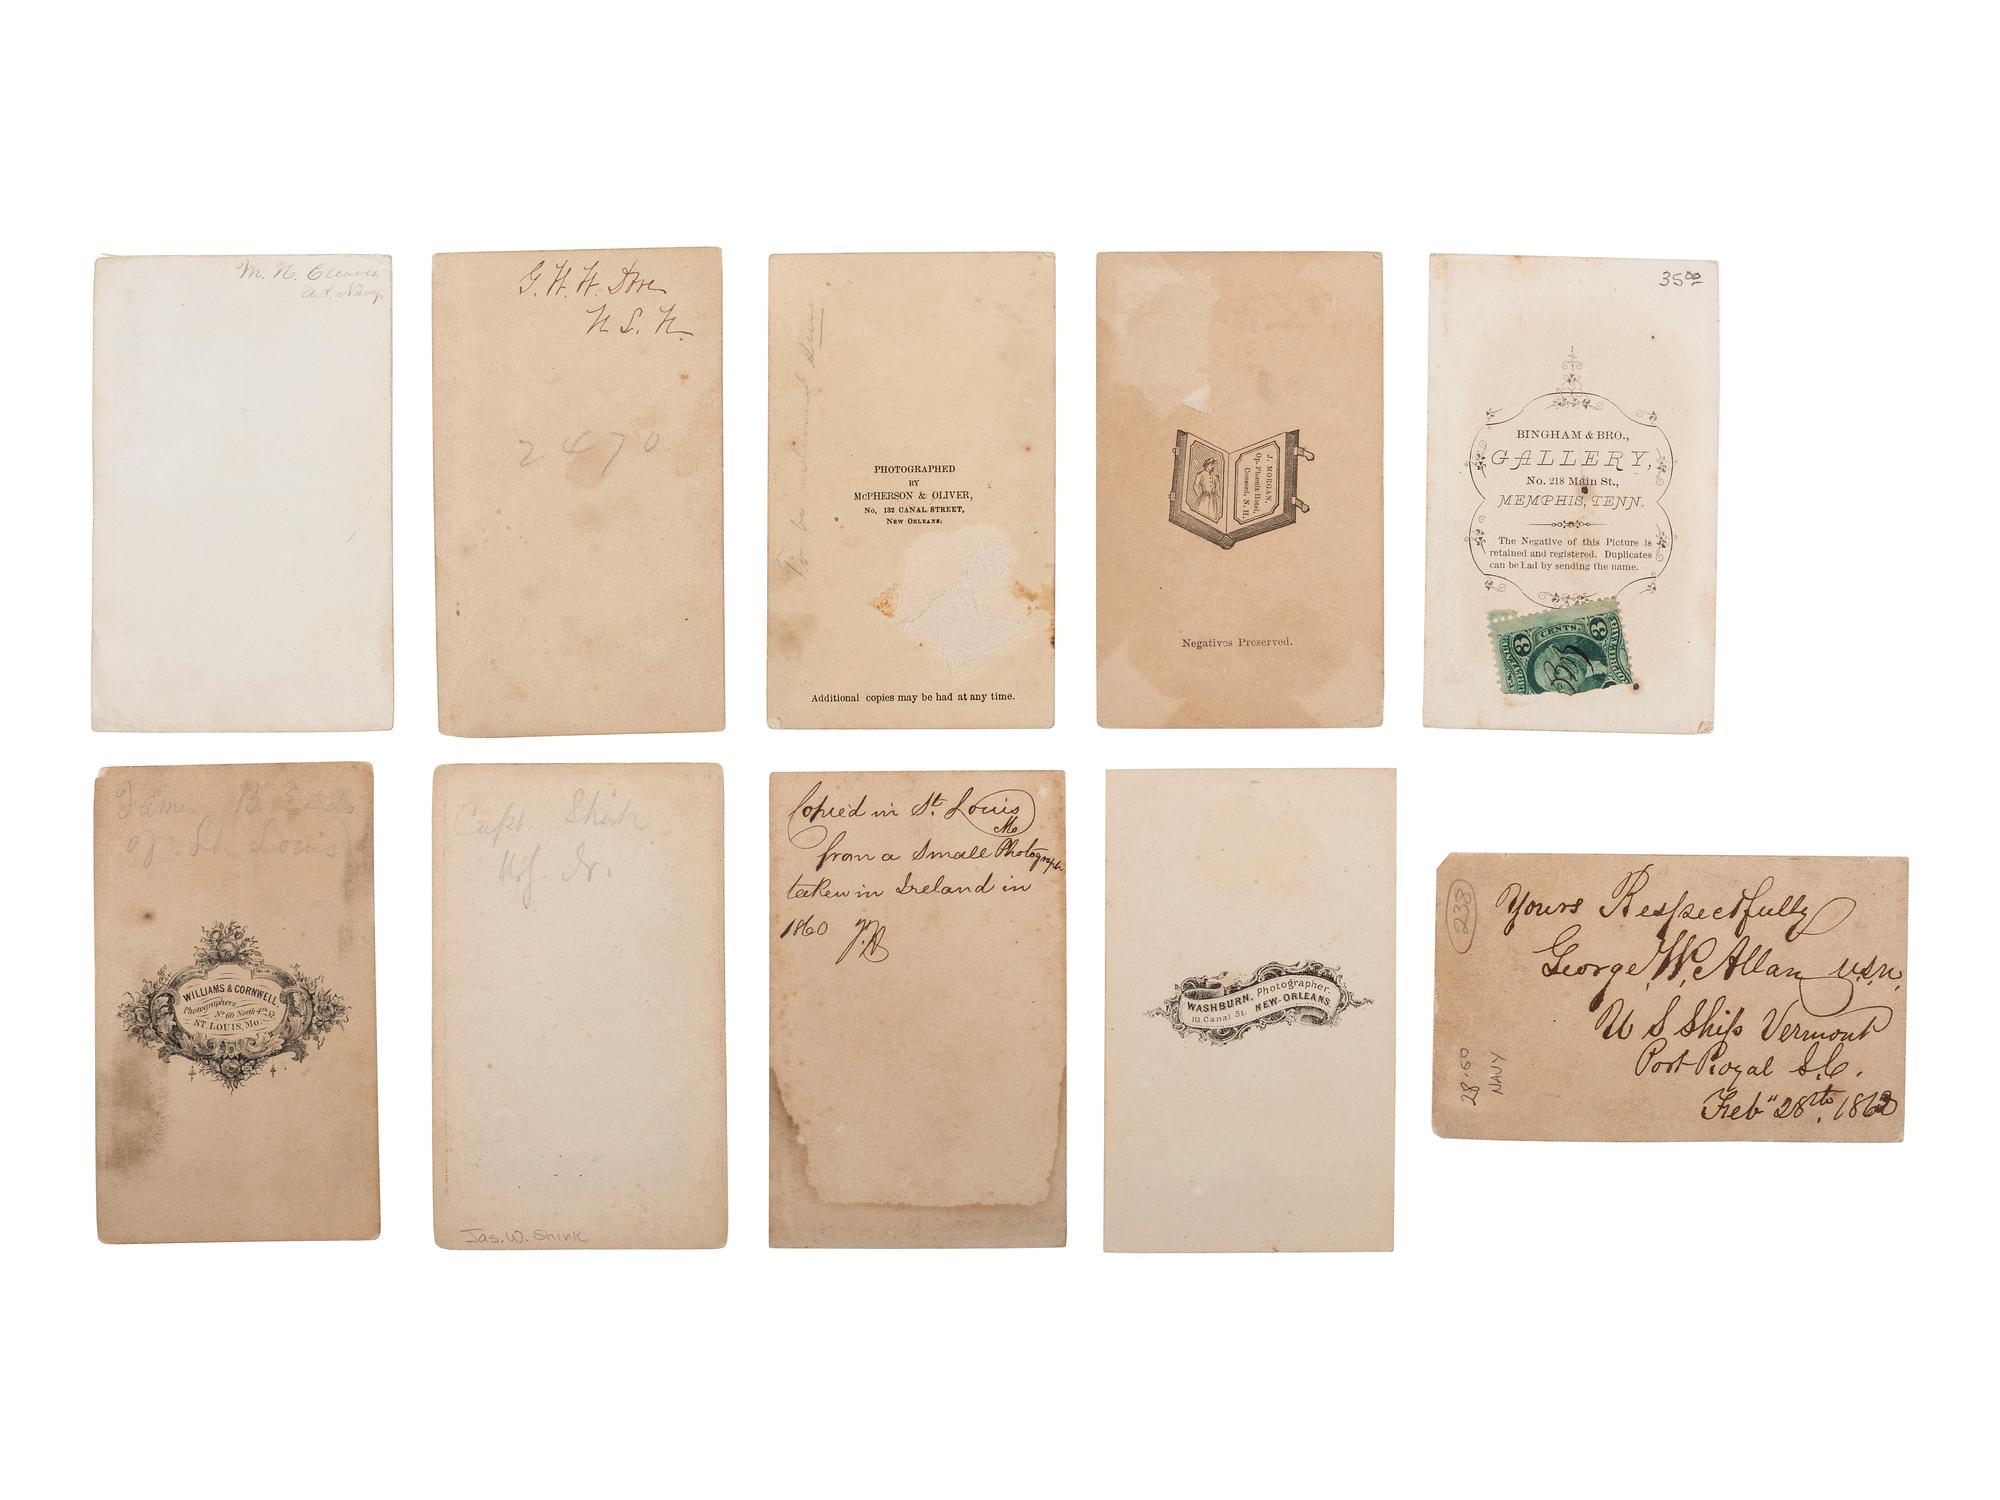 M. N. Cleaver
U.S. Navy
G. W. W. Dove
U. S. N.
2470
To be returned
PHOTOGRAPHED
BY
McPHERSON & OLIVER,
No, 132 CANAL STREET,
NEW ORLEANS.
Additional copies may be had at any time.
J. MORGAN,
Op. Phenix Hotel,
Concord, N. H.
Negatives Preserved.
35.00
BINGHAM & BRO.,
GALLERY,
No. 218 Main St.,
MEMPHIS, TENN.
The Negative of this Picture is
retained and registered. Duplicates
can be had by sending the name.
3 CENTS. 3
PROPRIETARY
James B Eads
of St Louis
WILLIAMS & CORNWELL
Photographers,
No 60 North 4th St.
ST. LOUIS, MO.
Capt. Shirk
Jas. W. Shirk
Copied in St. Louis
Mo
from a Small Photograph
taken in Ireland in
1860
WASHBURN, Photographer,
113 Canal St. NEW-ORLEANS
238
Yours Respectfully
George W. Allan U.S.N.
U S Ship Vermont
Port Royal S.C.
Feb" 28th, 1862
28.50
NAVY